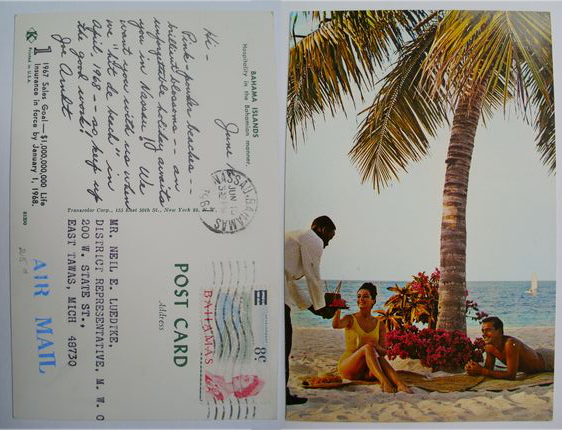 BAHAMA ISLANDS
Hospitality in the Bahamian manner.
June
Hi -
Pink-powder beaches --
brilliant blossoms -- an
unforgettable holiday awaits
you in Nassau. We
want you with us when
we "hit de beach" in
April, 1968 -- so, keep up
the good work!
Joe Arndt
1 1967 Sales Goal — $1,000,000,000 Life
Insurance in force by January 1, 1968.
K
Printed in U.S.A.
Transcolor Corp., 153 East 30th St., New York
POST CARD
Address
BAHAMAS
8c
NASSAU·BAHAMAS
JUN
1967
MR. NEIL E. LUEDTKE,
DISTRICT REPRESENTATIVE, M. W. O
200 W. STATE ST.,
EAST TAWAS, MICH 48730
AIR MAIL